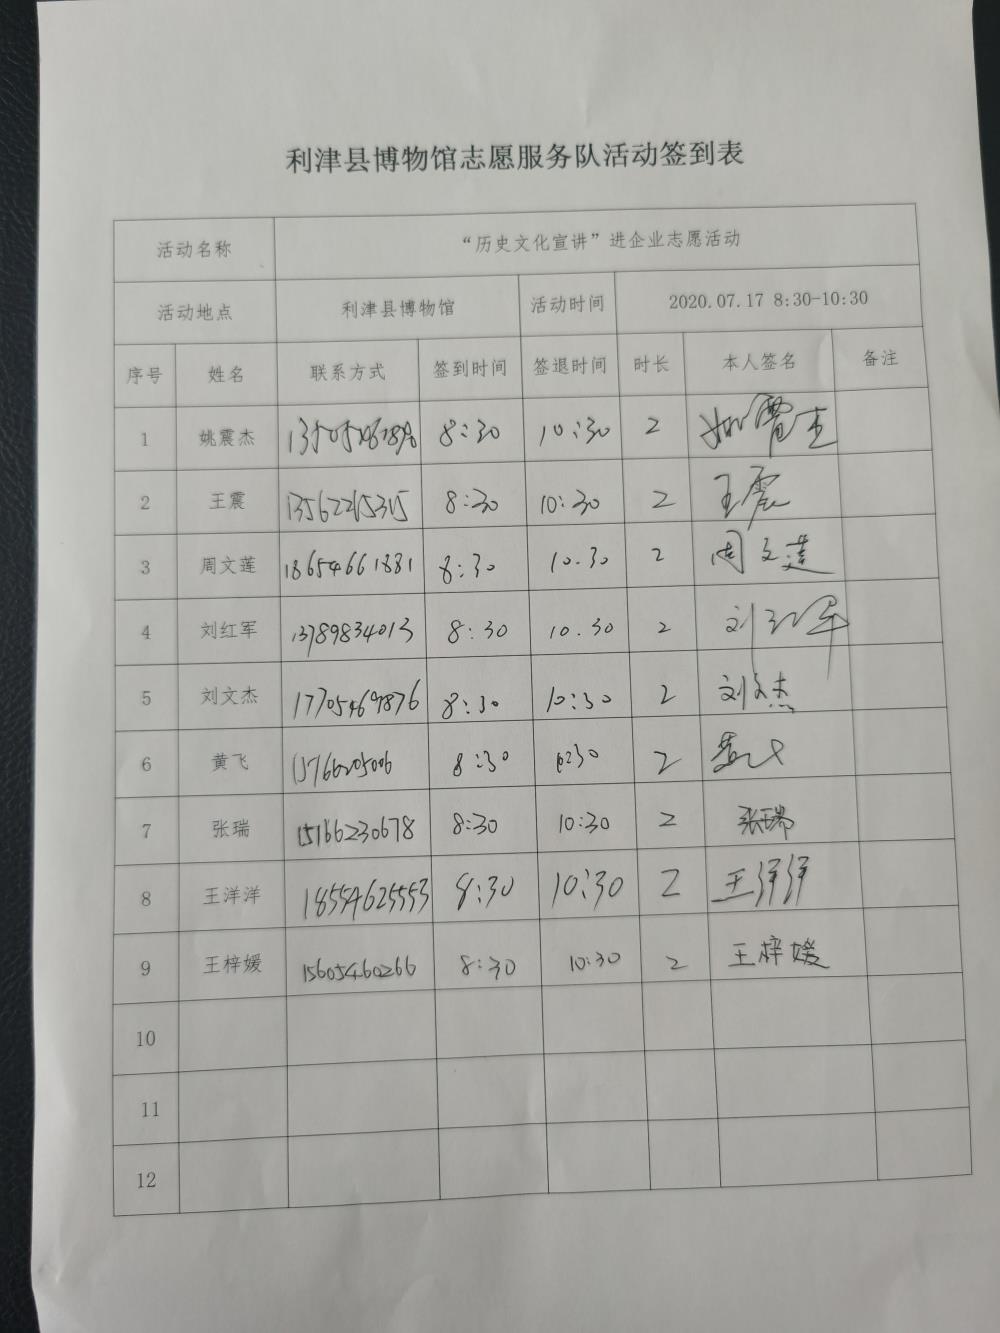 利津县博物馆志愿服务队活动签到表
活动名称 “历史文化宣讲”进企业志愿活动
活动地点 利津县博物馆 活动时间 2020.07.17 8:30-10:30
序号 姓名 联系方式 签到时间 签退时间 时长 本人签名 备注
1 姚震杰 8:30 10:30 2 姚震杰
2 王震 13562265315 8:30 10:30 2 王震
3 周文莲 18654661881 8:30 10.30 2 周文莲
4 刘红军 13789834013 8:30 10.30 2 刘红军
5 刘文杰 17705469876 8:30 10:30 2 刘文杰
6 黄飞 8:30 2 黄飞
7 张瑞 15166230678 8:30 10:30 2 张瑞
8 王洋洋 18554625553 8:30 10:30 2 王洋洋
9 王梓媛 15605460266 8:30 10:30 2 王梓媛
10
11
12